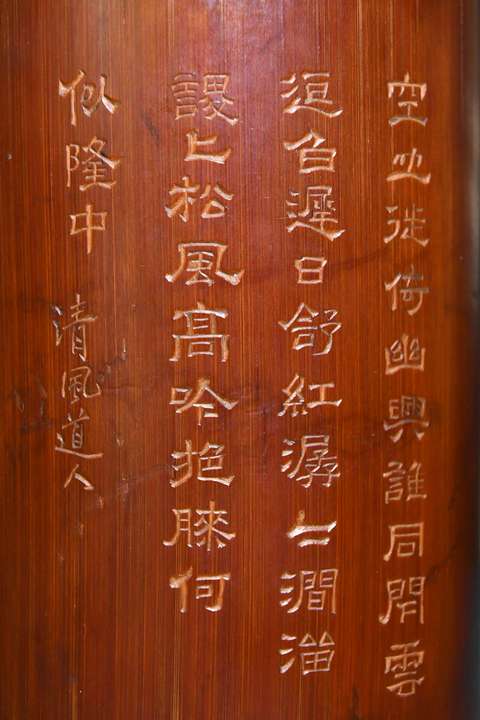 空山徙倚幽興誰同閒雲
逗白遲日舒紅潺〻澗溜
謖〻松風高吟抱膝何
似隆中
清風道人